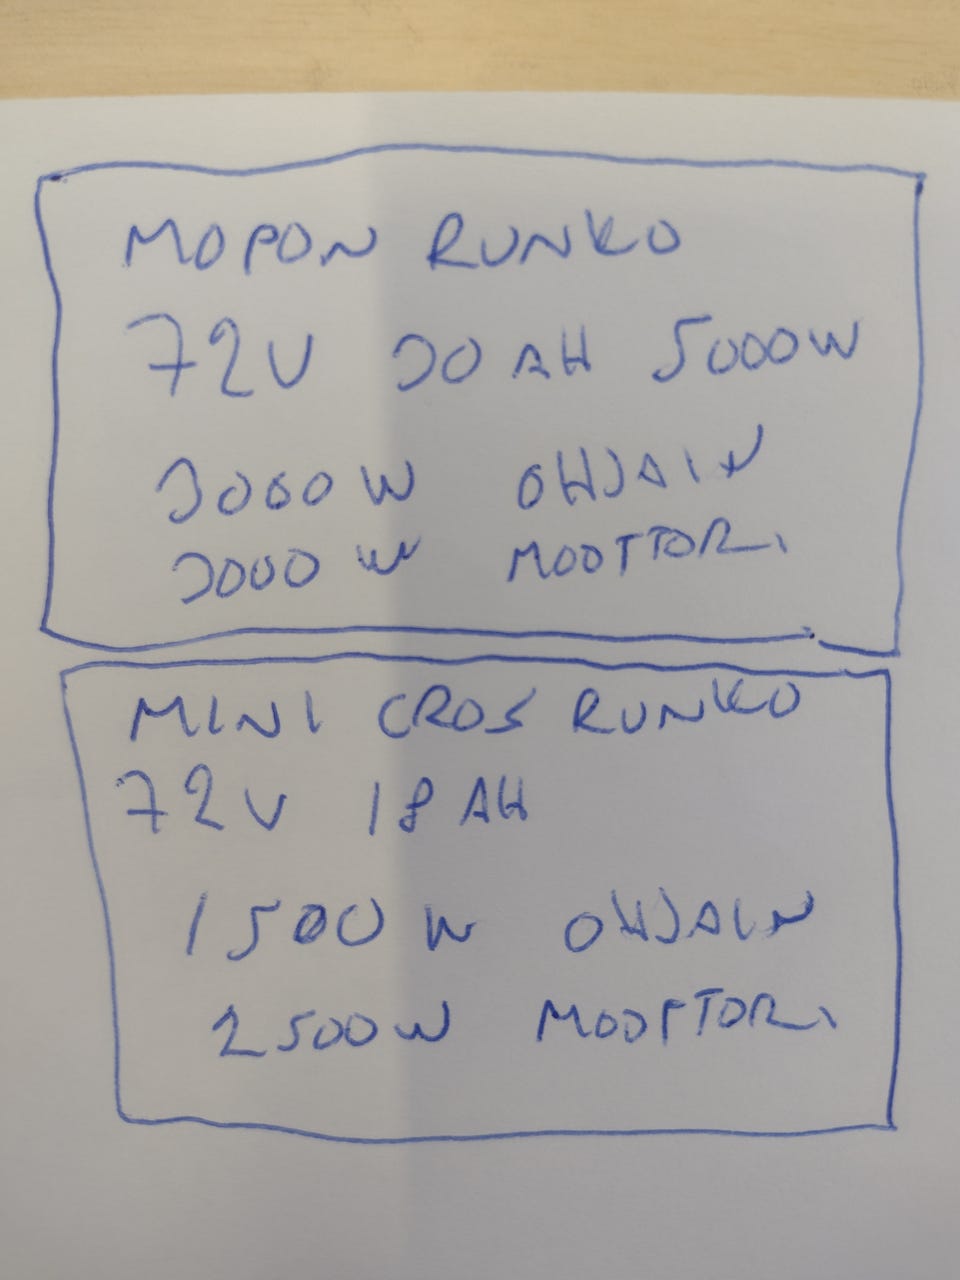 MOPON RUNKO
72V 30AH 5000W
3000W OHJAIN
3000W MOOTTORI
MINI CROS RUNKO
72V 18AH
1500W OHJAIN
2500W MOOTTORI